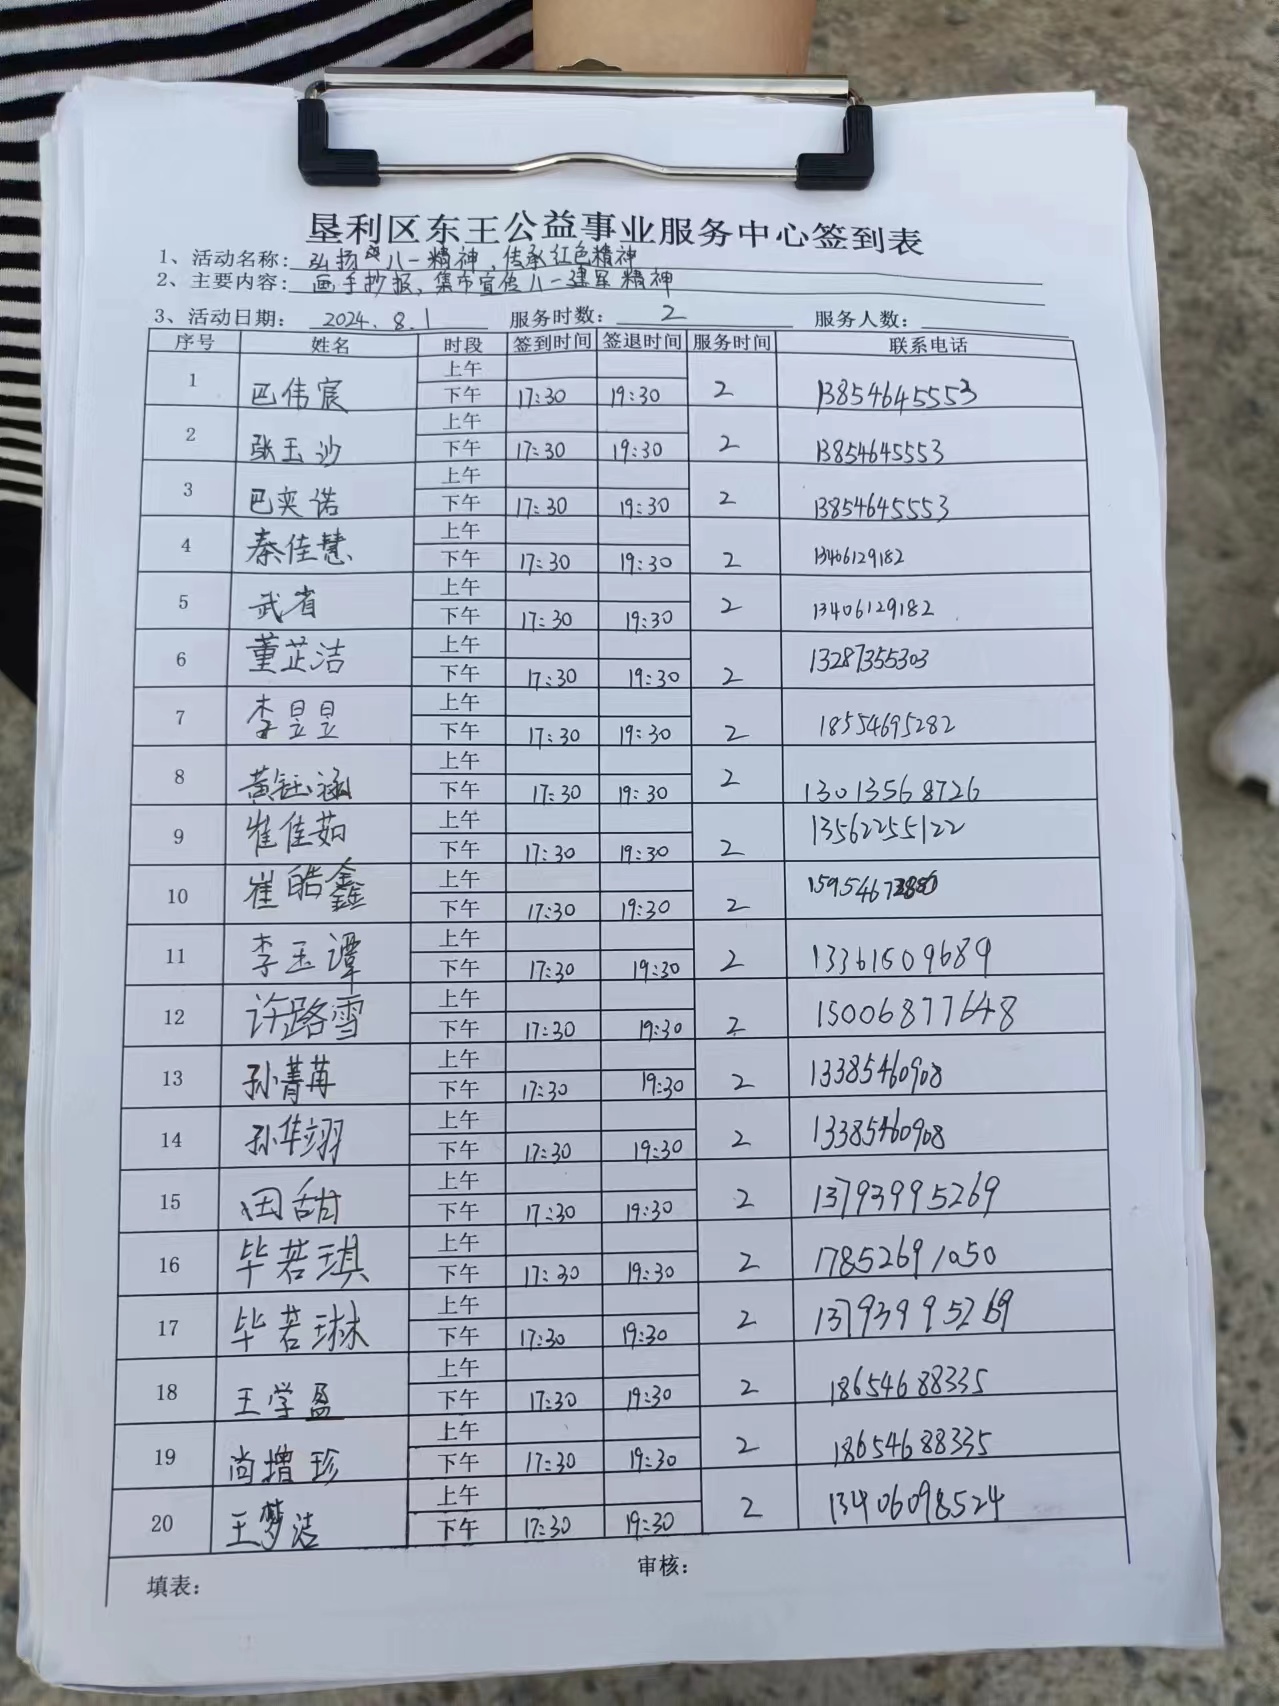 垦利区东王公益事业服务中心签到表
1、活动名称：弘扬 八一精神、传承红色精神
2、主要内容：画手抄报、集市宣传八一建军精神
3、活动日期：2024.8.1 服务时数：2 服务人数：
序号 姓名 时段 签到时间 签退时间 服务时间 联系电话
1 巴伟宸 上午 下午 17:30 19:30 2 13854645553
2 张玉沙 上午 下午 17:30 19:30 2 13854645553
3 巴奕诺 上午 下午 17:30 19:30 2 13854645553
4 秦佳慧 上午 下午 17:30 19:30 2 13406129182
5 武省 上午 下午 17:30 19:30 2 13406129182
6 董芷洁 上午 下午 17:30 19:30 2 13287355303
7 李昱昱 上午 下午 17:30 19:30 2 18554695282
8 黄钰涵 上午 下午 17:30 19:30 2 13013568726
9 崔佳茹 上午 下午 17:30 19:30 2 13562255122
10 崔皓鑫 上午 下午 17:30 19:30 2
11 李玉谭 上午 下午 17:30 19:30 2 13361509689
12 许路雪 上午 下午 17:30 19:30 2 15006877648
13 孙菁苒 上午 下午 17:30 19:30 2 13385460908
14 孙华翊 上午 下午 17:30 19:30 2 13385460908
15 田甜 上午 下午 17:30 19:30 2 13793995269
16 毕若琪 上午 下午 17:30 19:30 2 17852691050
17 毕若琳 上午 下午 17:30 19:30 2 13793995269
18 王学盈 上午 下午 17:30 19:30 2 18654688335
19 尚增珍 上午 下午 17:30 19:30 2 18654688335
20 王梦洁 上午 下午 17:30 19:30 2 13406098524
填表： 审核：